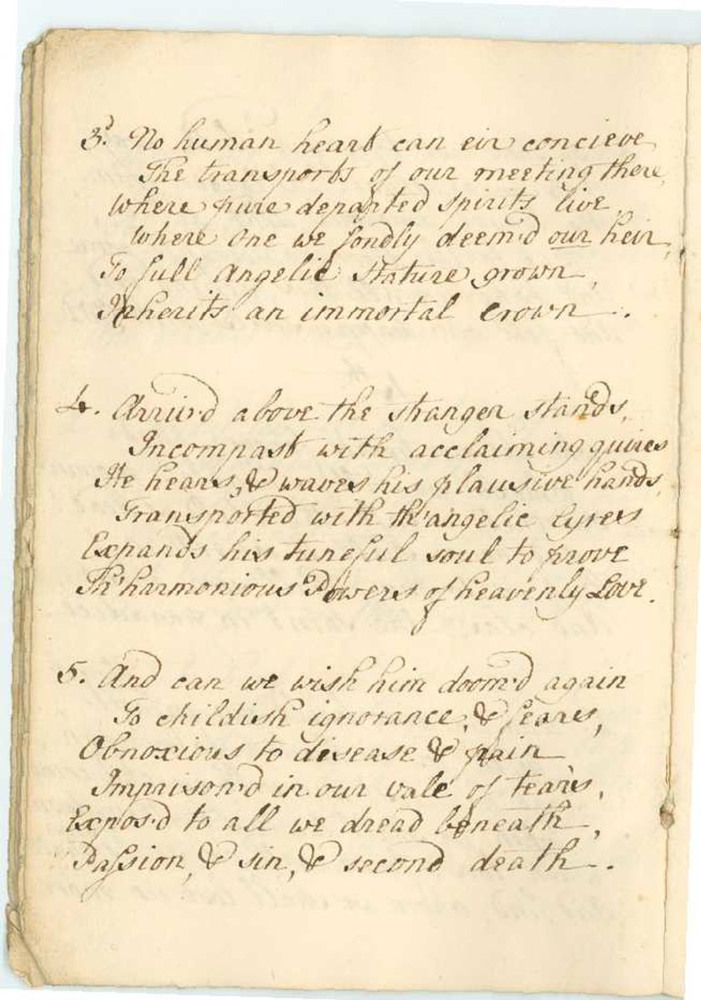 3. No human heart can eir concieve
The transports of our meeting there,
Where pure departed spirits live
Where one we fondly deem'd our heir,
To full Angelic Stature grown,
Inherits an immortal Crown.
4. Arriv'd above the stranger stands,
Incompast with acclaiming quires
He hears, & waves his plausive hands,
Transported with th' angelic Lyres
Expands his tuneful soul to prove
Th' harmonious Powers of heavenly Love.
5. And can we wish him doom'd again
To childish ignorance, & fears,
Obnoxious to disease & pain
Imprison'd in our vale of tears,
Expos'd to all we dread beneath,
Passion, & sin, & second death.